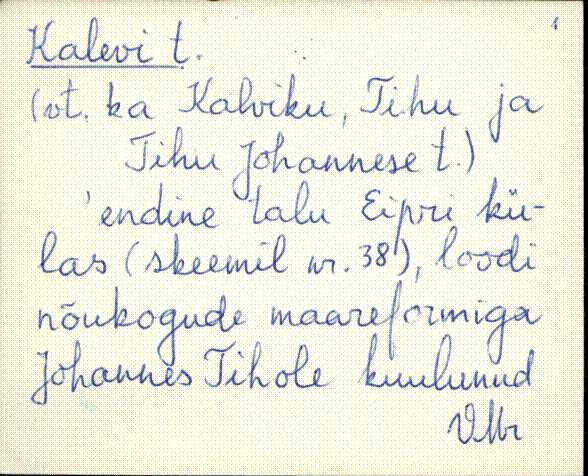 Kalevi t.
(vt. ka Kalviku, Tihu ja
Tihu Johannese t.)
'endine talu Eipri kü-
las (skeemil nr. 38), loodi
nõukogude maareformiga
Johannes Tihole kuulunud
VMr